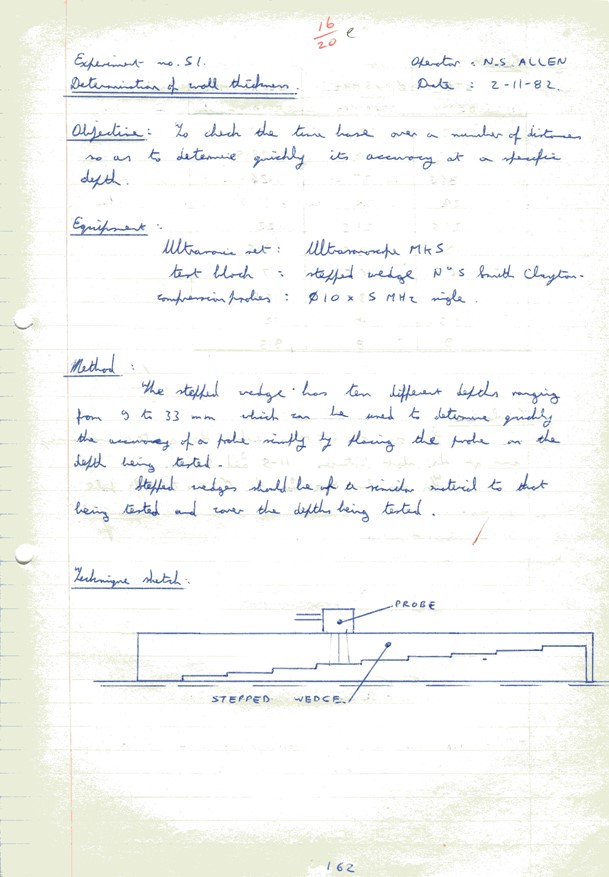 16
20 e
Experiment no. 51. Operator : N.S. ALLEN
Determination of wall thickness. Date : 2-11-82.
Objective: To check the time base over a number of distances
so as to determine quickly its accuracy at a specific
depth.
Equipment :
Ultrasonic set : Ultrasonoscope Mk5
test block : stepped wedge No 5 Smith Clayton.
compression probes : Ø10 x 5 MHz single.
Method :
The stepped wedge has ten different depths ranging
from 9 to 33 mm which can be used to determine quickly
the accuracy of a probe simply by placing the probe on the
depth being tested.
Stepped wedges should be of a similar material to that
being tested and cover the depths being tested.
Technique sketch:
PROBE
STEPPED WEDGE.
162